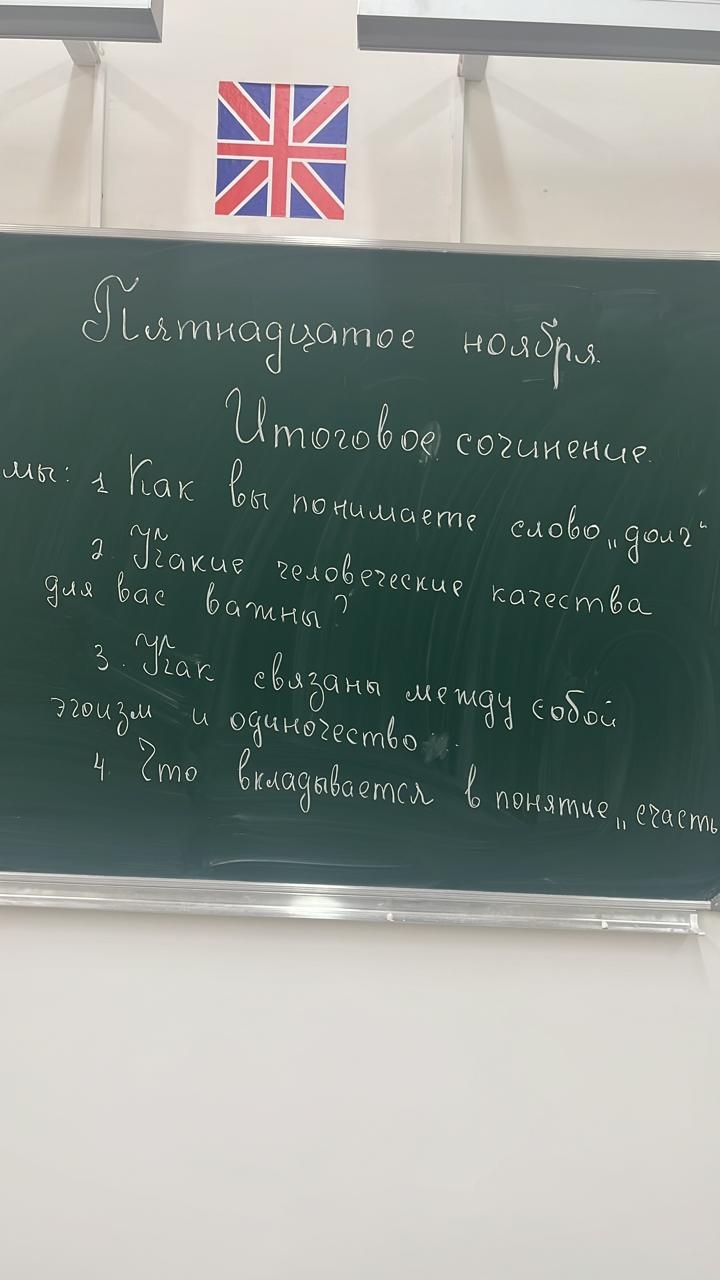 Пятнадцатое ноября.
Итоговое сочинение.
мы: 1 Как вы понимаете слово „долг“
2. Какие человеческие качества
для вас важны?
3. Как связаны между собой
эгоизм и одиночество
4. Что вкладывается в понятие „счасть